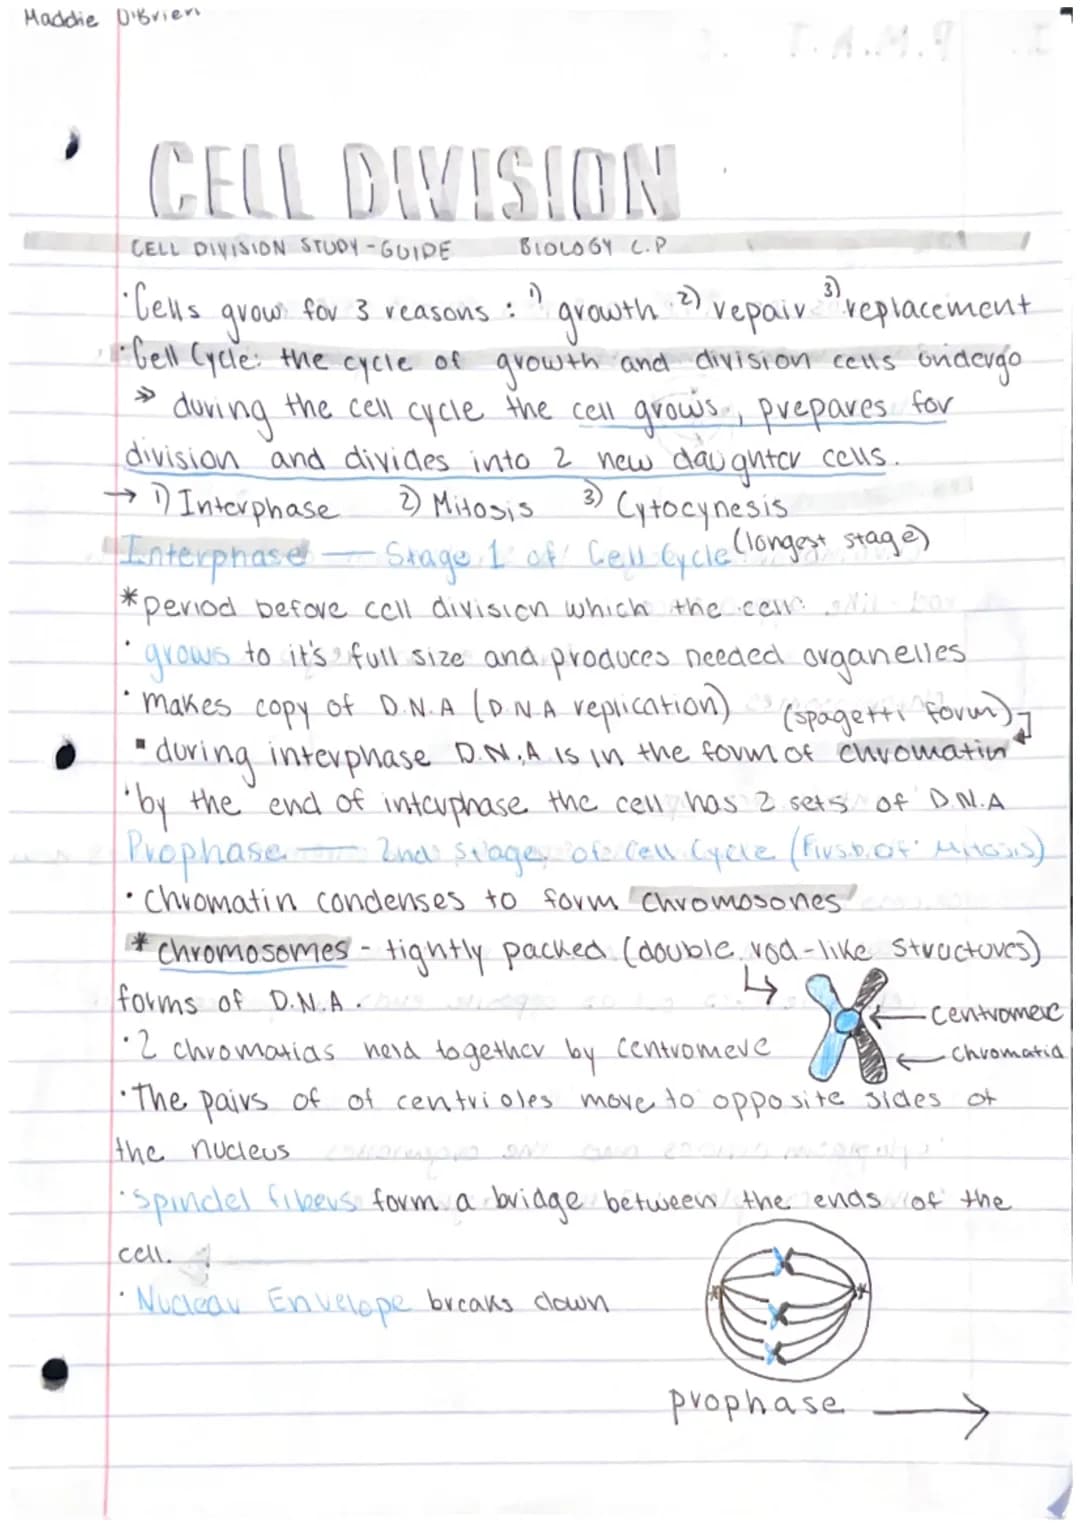 Maddie O'Brien
CELL DIVISION
CELL DIVISION STUDY-GUIDE BIOLOGY C.P
·Cells grow for 3 reasons : 1) growth 2) repair 3) replacement
·Cell Cycle: the cycle of growth and division cells undergo
» during the cell cycle the cell grows, prepares for
division and divides into 2 new daughter cells.
→ 1) Interphase 2) Mitosis 3) Cytocynesis
Interphase — Stage 1 of Cell Cycle (longest stage)
* period before cell division which the cell
· grows to it's full size and produces needed organelles
· makes copy of D.N.A (D.N.A replication) (spagetti form)
▪ during interphase D.N.A is in the form of chromatin
·by the end of interphase the cell has 2 sets of D.N.A
Prophase — 2nd Stage of Cell Cycle (First of Mitosis)
· Chromatin condenses to form chromosones
* chromosomes - tightly packed (double rod-like structures)
forms of D.N.A.
centromere
chromatid
·2 chromatids held together by centromere
·The pairs of of centrioles move to opposite sides of
the nucleus
·Spindel fibers form a bridge between the ends of the
cell.
·Nuclear Envelope breaks down
prophase →